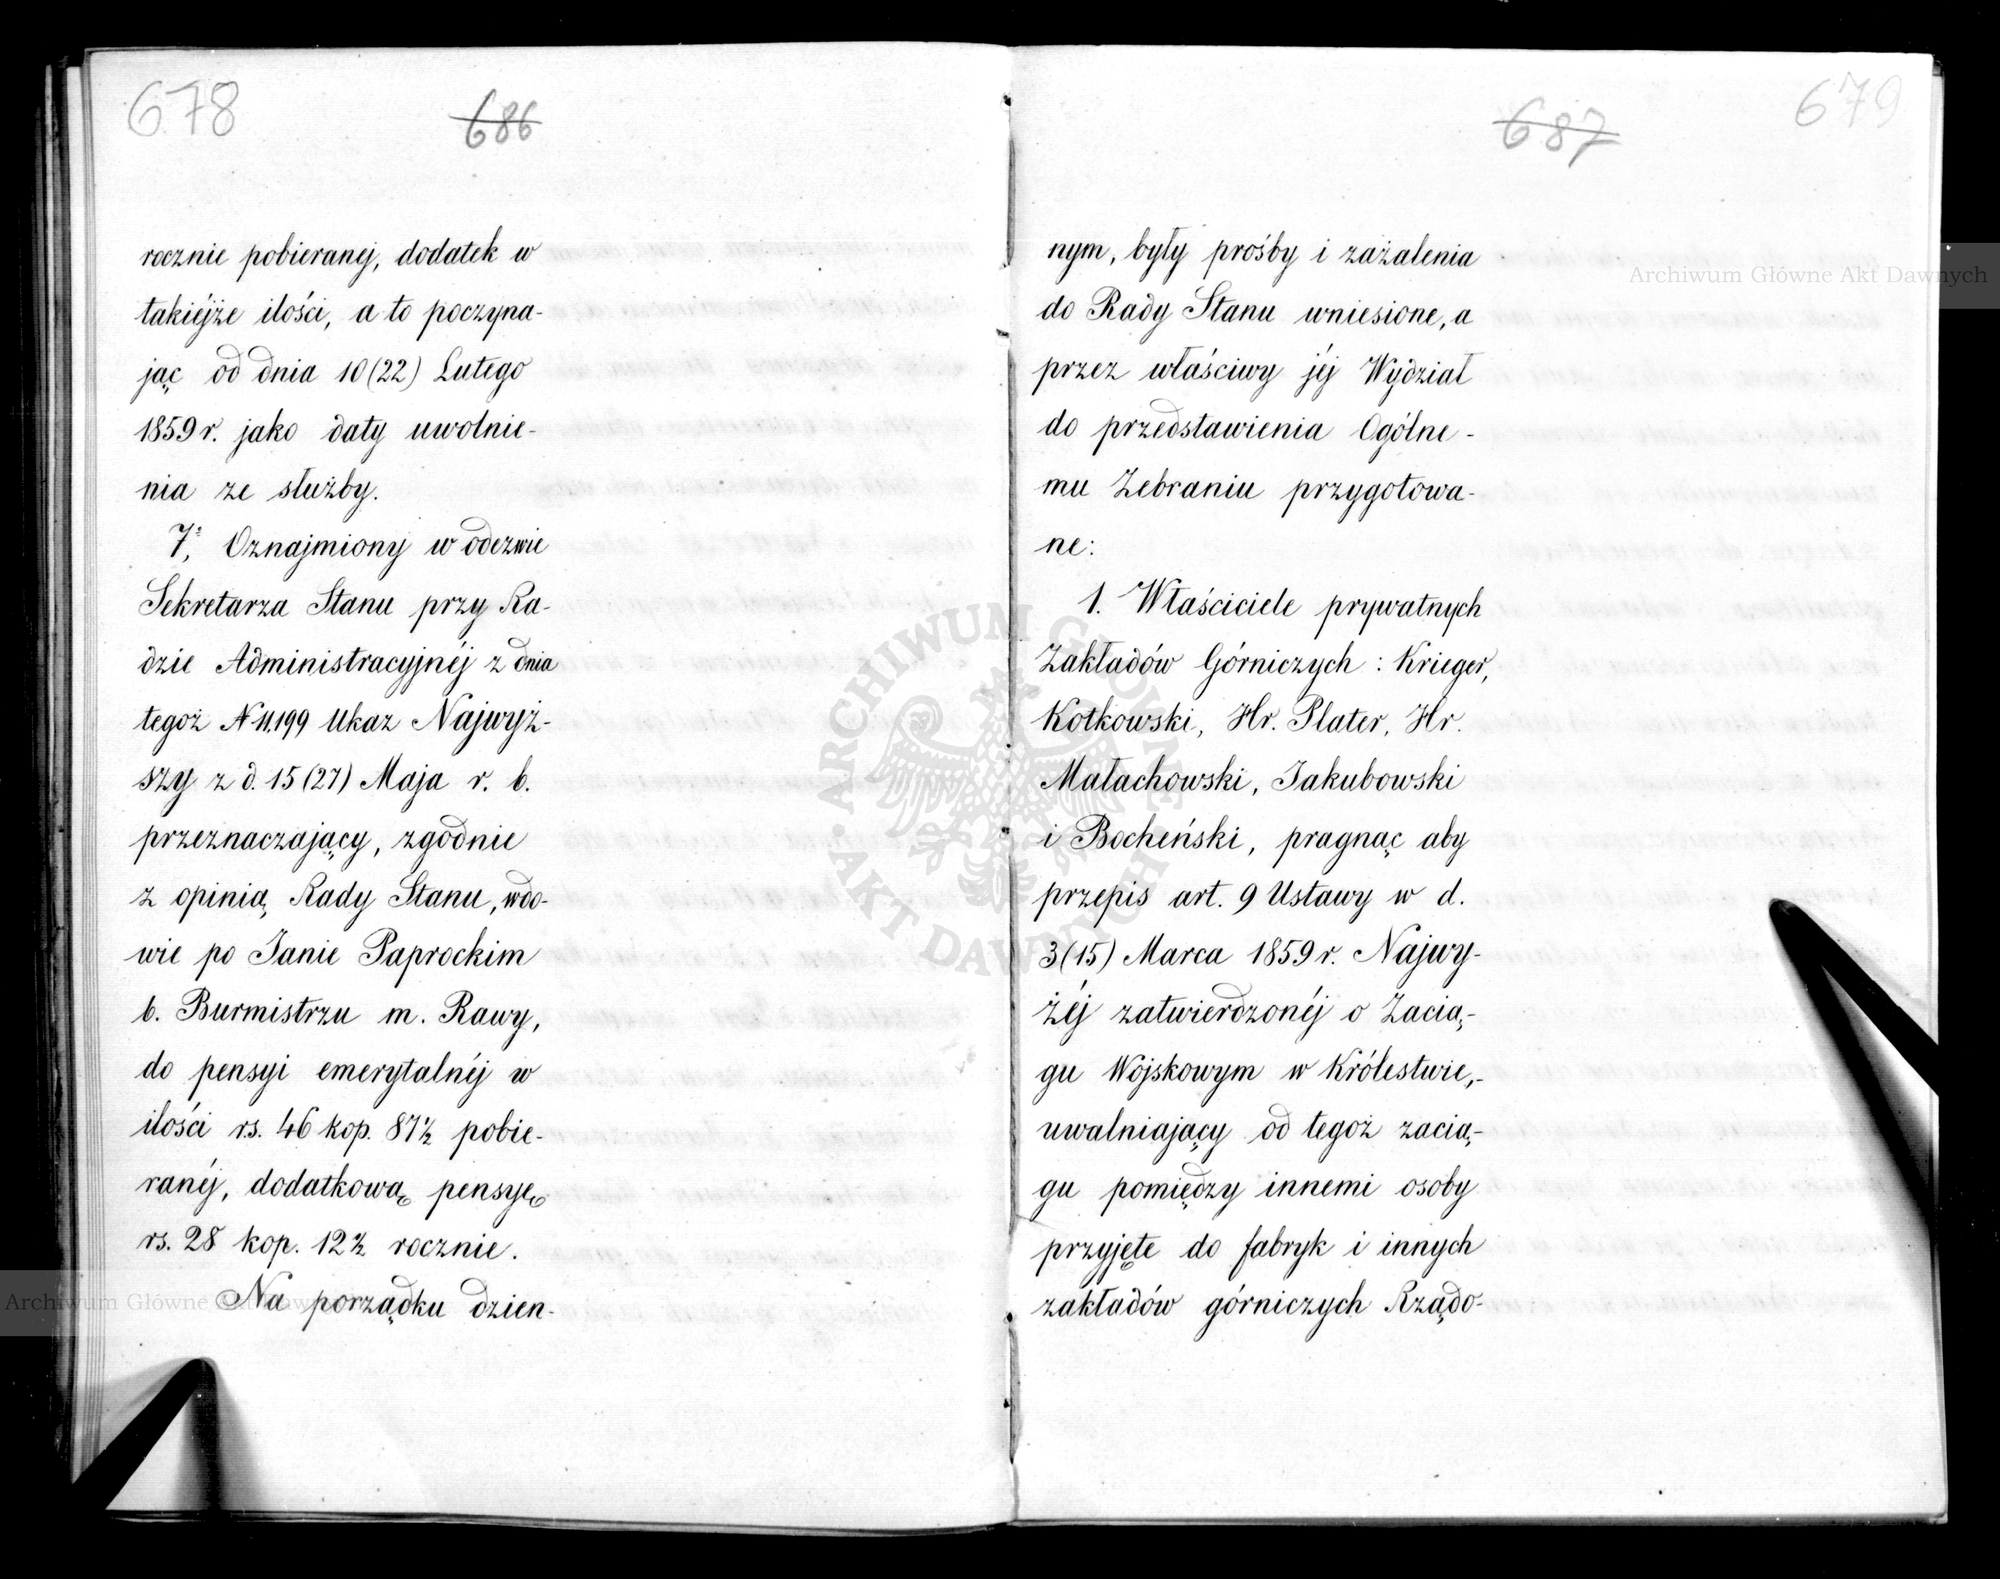 678
686
rocznie pobieranej, dodatek w
takiéjże ilości, a to poczyna-
jąc od dnia 10(22) Lutego
1859 r. jako daty uwolnie-
nia ze służby.
7, Oznajmiony w odezwie
Sekretarza Stanu przy Ra-
dzie Administracyjnéj z dnia
tegoż N 11,199 Ukaz Najwyż-
szy z d. 15 (27) Maja r. b.
przeznaczający, zgodnie
z opinią Rady Stanu, wdo-
wie po Janie Paprockim
b. Burmistrzu m. Rawy,
do pensyi emerytalnéj w
ilości rs. 46 kop. 87½ pobie-
ranéj, dodatkową pensyę
rs. 28 kop. 12½ rocznie.
Na porządku dzien-
687
679
nym, były prośby i zażalenia
do Rady Stanu wniesione, a
przez właściwy jéj Wydział
do przedstawienia Ogólne-
mu Zebraniu przygotowa-
ne:
1. Właściciele prywatnych
Zakładów Górniczych: Krieger,
Kotkowski, Hr. Plater, Hr.
Małachowski, Jakubowski
i Bocheński, pragnąc aby
przepis art. 9 Ustawy w d.
3(15) Marca 1859 r. Najwy-
żéj zatwierdzonéj o Zacią-
gu Wojskowym w Królestwie,
uwalniający od tegoż zacią-
gu pomiędzy innemi osoby
przyjęte do fabryk i innych
zakładów górniczych Rządo-
Archiwum Główne Akt Dawnych
Archiwum Główne Akt Dawnych
ARCHIWUM GŁÓWNE AKT DAWNYCH